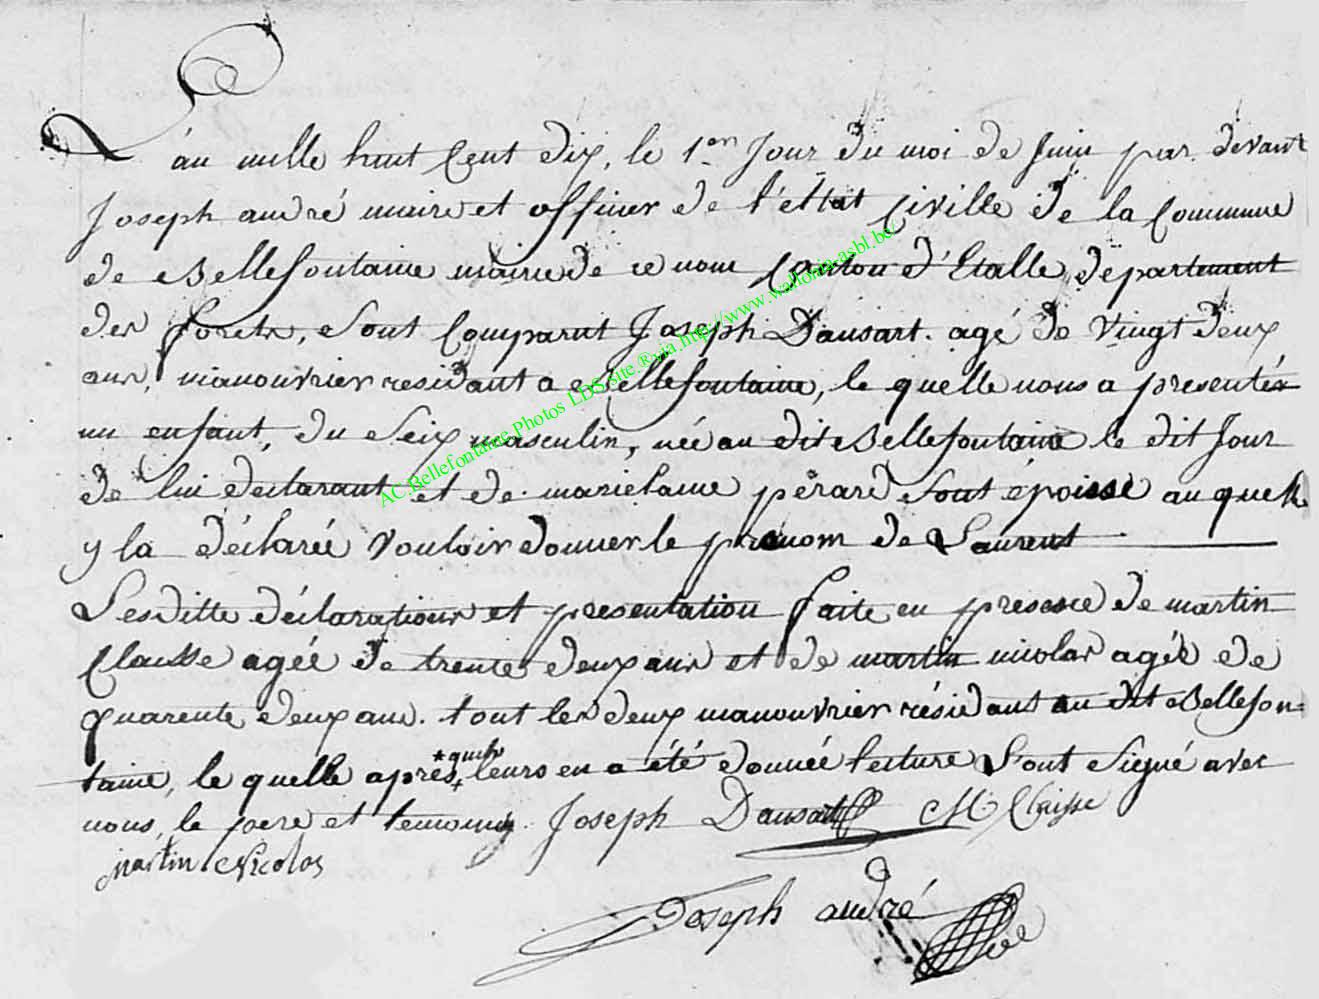 L'an mille huit Cent dix, le 1.er Jour du moi de Juin par devant
Joseph andré maire et officier de l'éttat Civille de la Commune
de Bellefontaine mairie de ce nom Canton d'Etalle, département
des forets, sont Comparut Joseph Dausart. agé de vingt deux
ans, manouvrier residant a Bellefontaine, le quelle nous a presentés
un enfant, du Seix masculin, née au dit Bellefontaine le dit Jour
de lui déclarant et de marie pérard sont époisse au quelle
y la déclarée vouloir donner le prenom de Laurent
Lesditte déclarations et presentation faite en presence de martin
Clausse agée de trente deux ans et de martin nicolas agée de
quarente deux ans. tout les deux manouvrier résidant au dit Bellefon=
taine, le quelle après * leurs en a été donnée lecture L'ont Signé avec
nous, le pere et temoins Joseph Dausart M Claisse
martin Nicolas
Joseph andré
AC.Bellefontaine.Photos LDS.site.:Raja.http://www.wallonia-asbl.be/